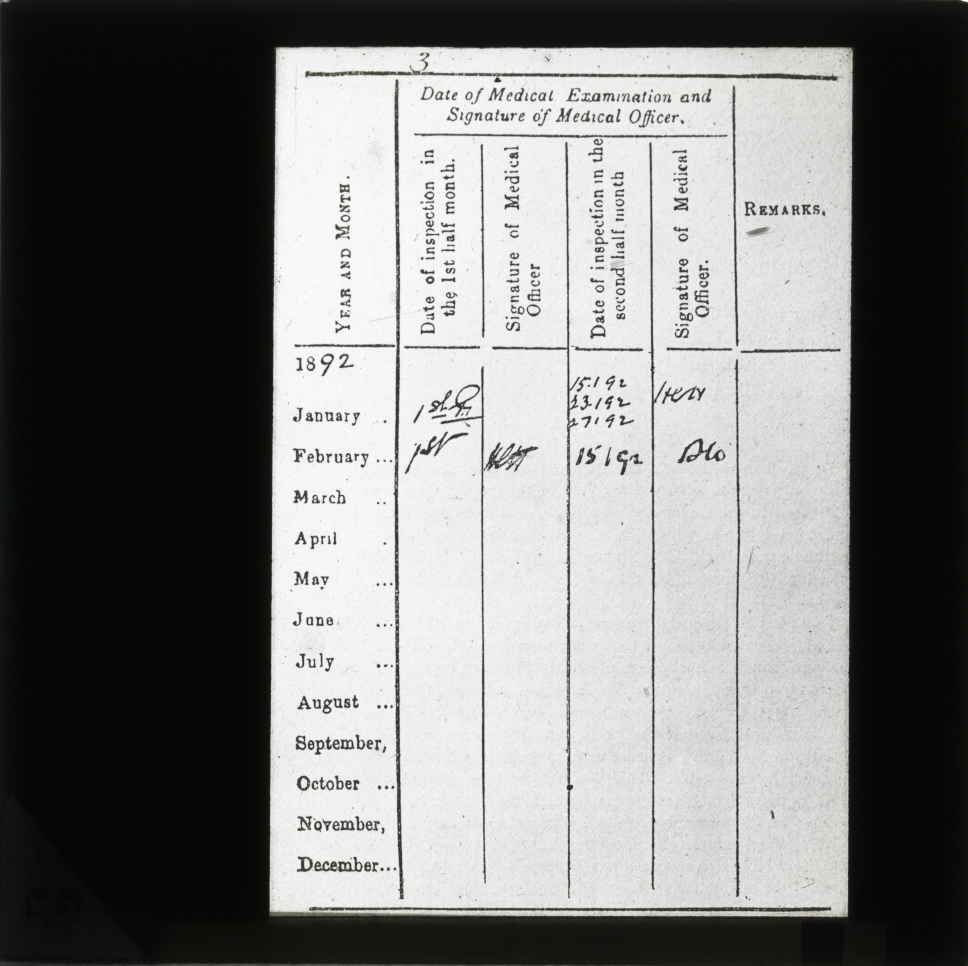 3
Date of Medical Examination and
Signature of Medical Officer.
YEAR AND MONTH.
Date of inspection in
the 1st half month.
Signature of Medical
Officer
Date of inspection in the
second half month
Signature of Medical
Officer.
REMARKS.
1892
15.1 92
23.1 92
27 1 92
January . 1st
February ... 1st 15 1 92
March ..
April .
May ...
June ...
July ...
August ...
September,
October ...
November,
December...